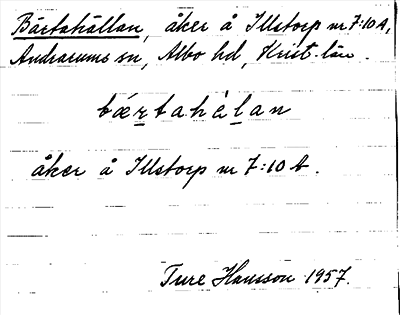 Bärtahällan, åker å Illstorp nr 7:10 A,
Andrarums sn, Albo hd, Krist. län.
bǽrtahèlan
åker å Illstorp nr 7:10 A.
Ture Hansson 1957.